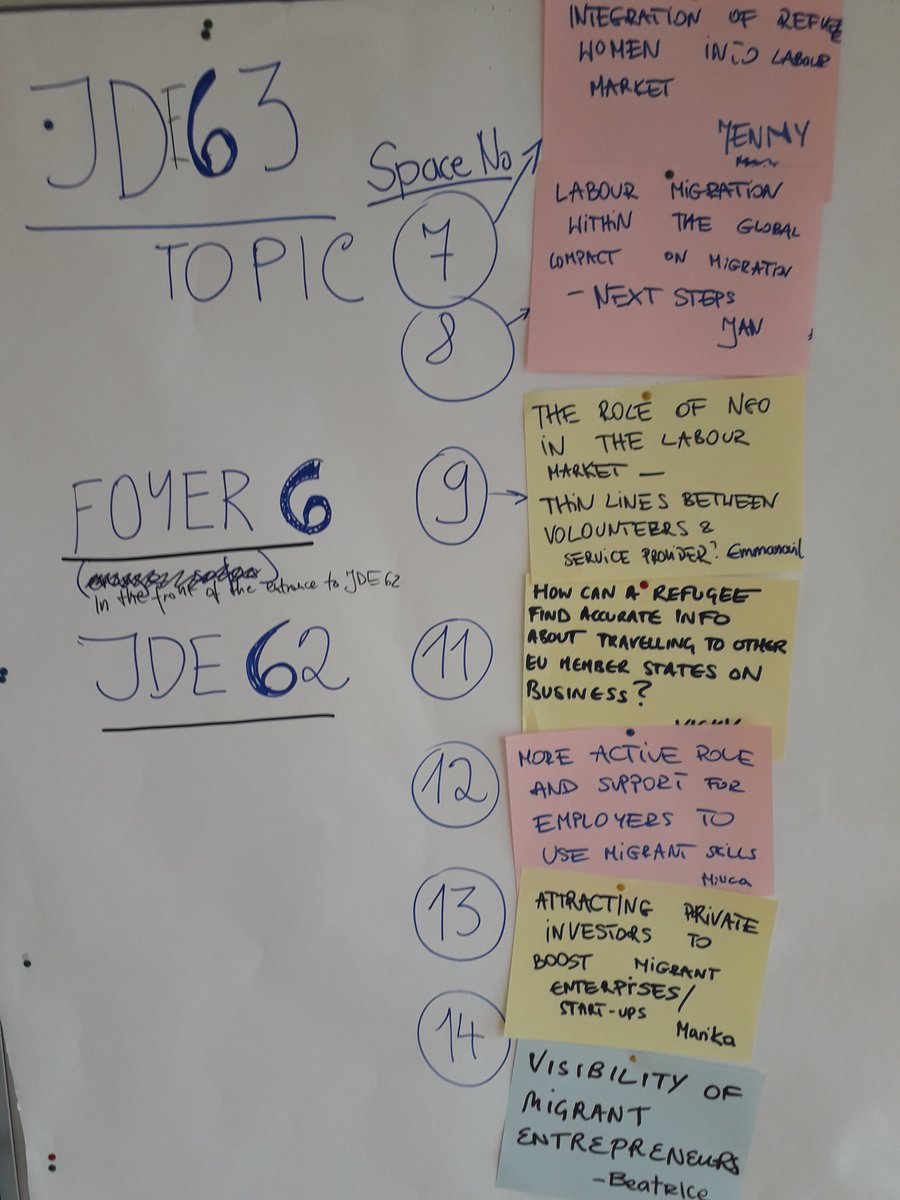 JDE63
TOPIC
Space No
7
INTEGRATION OF REFUGEE
WOMEN INTO LABOUR
MARKET
JENMY
8
LABOUR MIGRATION
WITHIN THE GLOBAL
COMPACT ON MIGRATION
- NEXT STEPS
JAN
FOYER 6
In the front of the entrance to JDE 62
9
THE ROLE OF NGO
IN THE LABOUR
MARKET —
THIN LINES BETWEEN
VOLOUNTEERS &
SERVICE PROVIDER? Emmanail
JDE 62
11
HOW CAN A REFUGEE
FIND ACCURATE INFO
ABOUT TRAVELLING TO OTHER
EU MEMBER STATES ON
BUSINESS?
12
MORE ACTIVE ROLE
AND SUPPORT FOR
EMPLOYERS TO
USE MIGRANT SKILLS
13
ATTRACTING PRIVATE
INVESTORS TO
BOOST MIGRANT
ENTERPISES/
START-UPS
Marika
14
VISIBILITY OF
MIGRANT
ENTREPRENEURS
- Beatrice